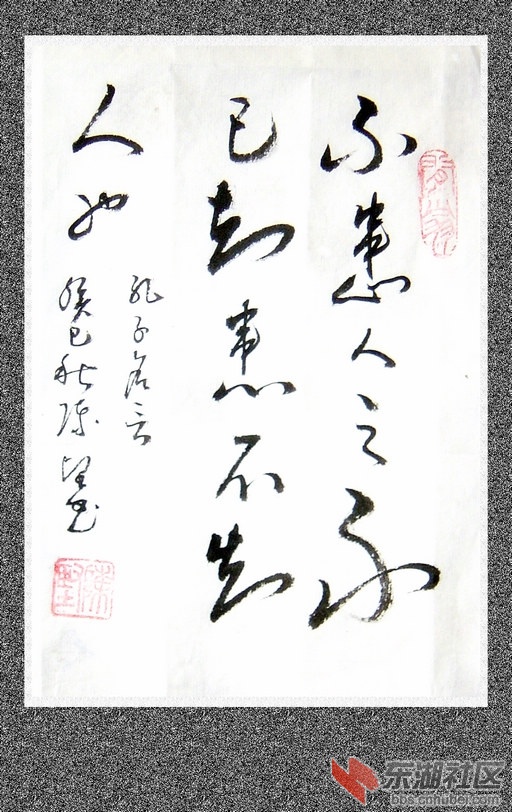 不患人之不
己知患不知
人也
孔子名言
癸巳秋陈坚书
东湖社区
bbs.cnhubei.com